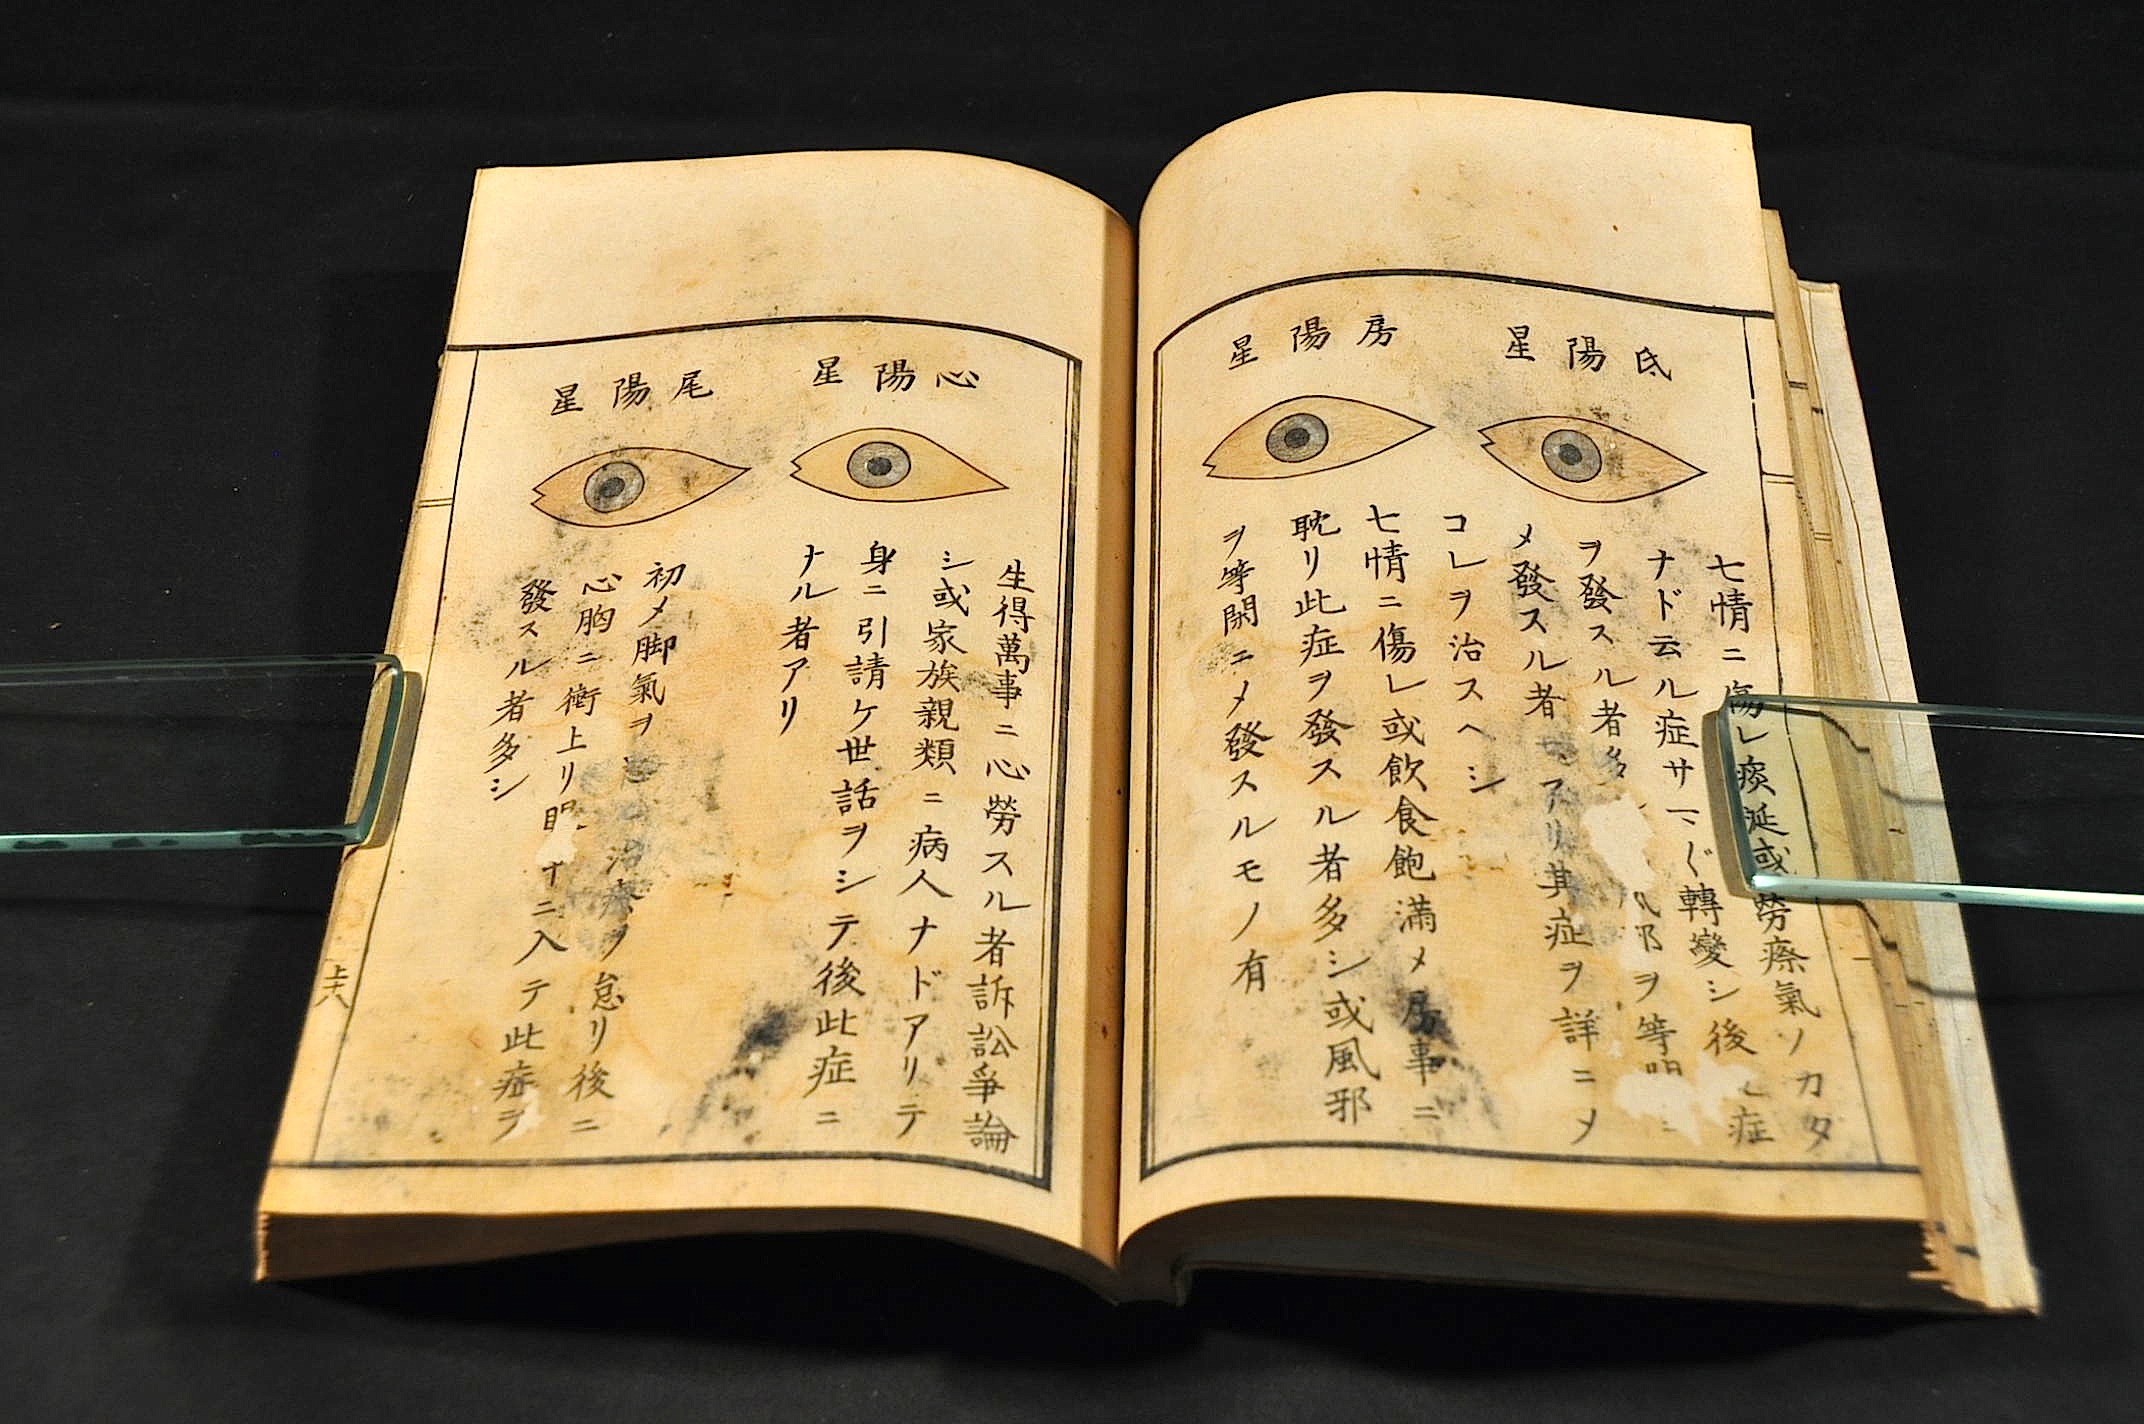 氐陽星
七情ニ傷レ痰涎或労瘵氣ノカタ
ナド云ル症サマ〴〵轉變シ後 症
ヲ發スル者多 ヲ等
メ發スル者 アリ其症ヲ詳ニメ
コレヲ治スヘシ
房陽星
七情ニ傷レ或飲食飽滿メ房事ニ
耽リ此症ヲ發スル者多シ或風邪
ヲ等閑ニメ發スルモノ有
心陽星
生得萬事ニ心勞スル者訴訟爭論
シ或家族親類ニ病人ナドアリテ
身ニ引請ケ世話ヲシテ後此症ニ
ナル者アリ
尾陽星
初メ脚氣ヲ 治療ヲ怠リ後ニ
心胸ニ衝上リ眼 ニ入テ此症ヲ
發スル者多シ
上 六